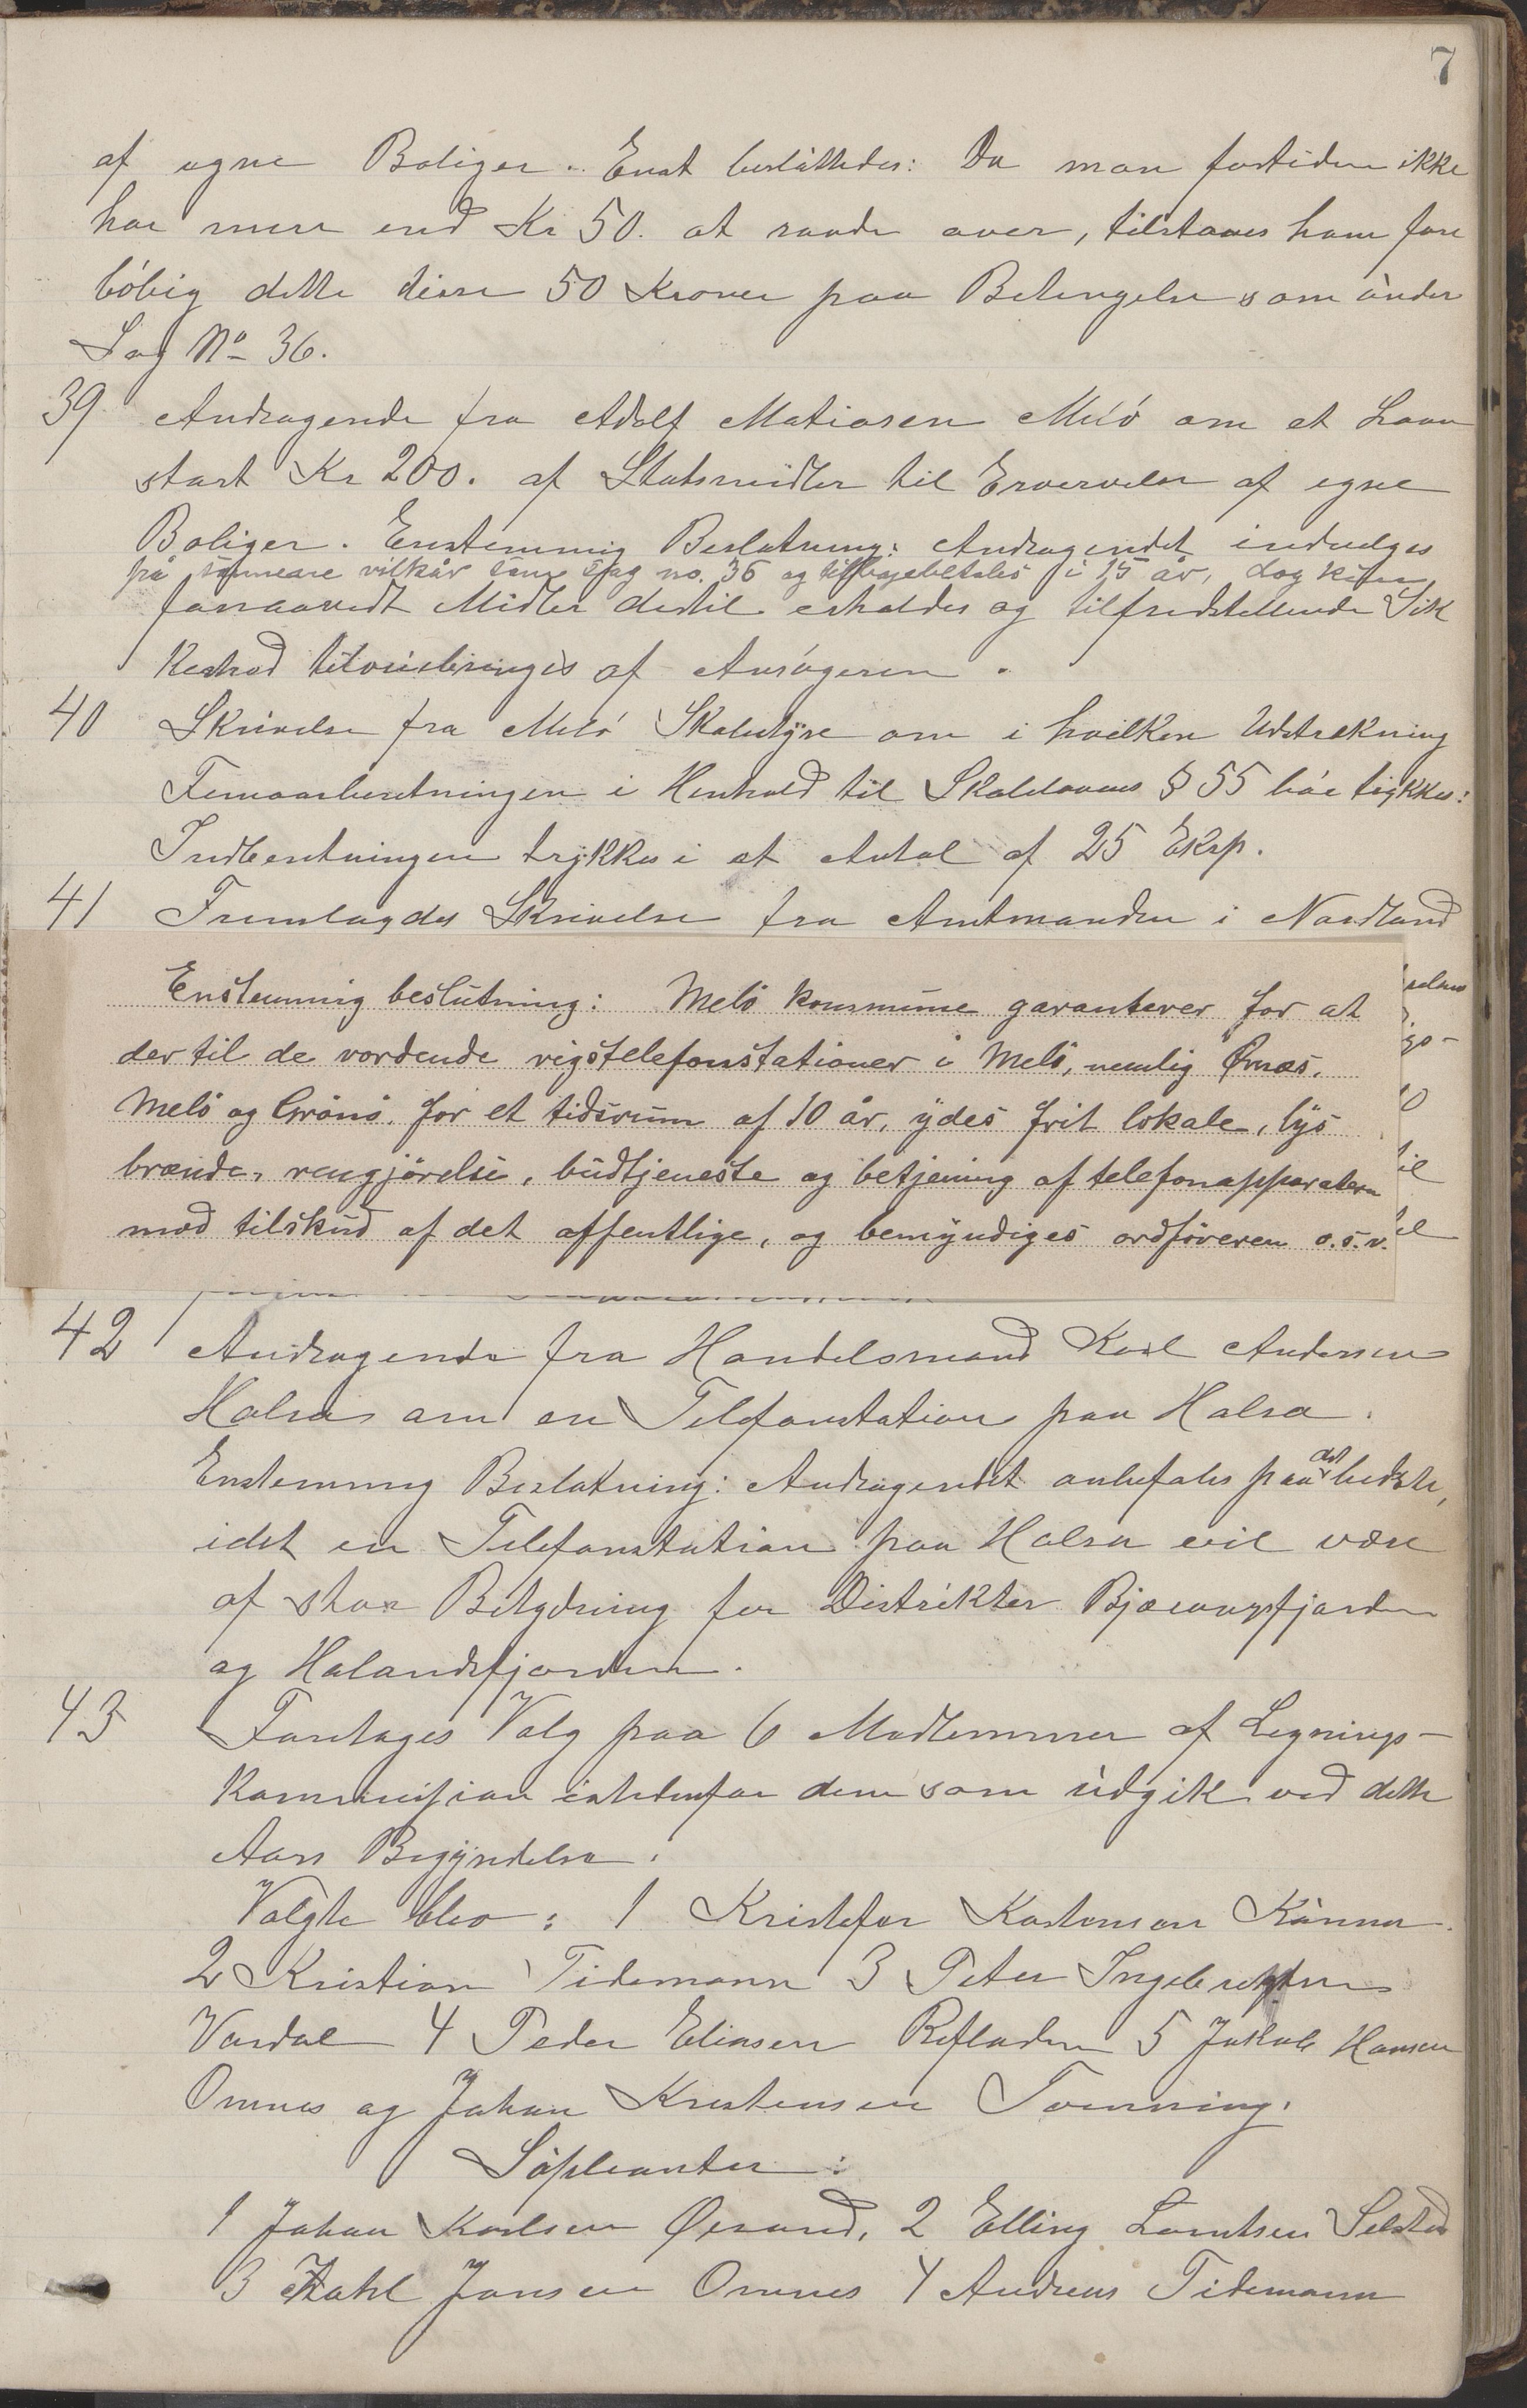 7
af egne Boliger. Enst besluttedes: Da man fortiden ikke
har mere end Kr 50. at raade over, tilstaaes ham fore
löbig dette disse 50 Kroner paa Betingelse som under
Sag No 36.
39 Andragende fra Adolf Matiasen Melö om et Laan
stort Kr 200. af Statsmidler til Erververlse af egne
Boliger. Enstemmig Beslutning: Andragendet indvilges
på samme vilkår som sag no. 36 og tilbagebetales i 15 år, dog kun
forsaavidt Midler dertil erholdes og tilfredstillende Sik
kerhed tilveiebringes af Ansögeren.
40 Skrivelse fra Melö Skolestyre om i hvilken Udstrekning
Femaarsberetningen i Henhold til Skolelovens § 55 bör trykkes:
Indberetningen trykkes i et Antal af 25 Eksp.
41 Fremlagdes Skrivelse fra Amtmanden i Nordland
Enstemmig beslutning: Melö kommune garanterer for at
der til de vordende rigstelefonstationer i Melö, nemlig Ørnæs,
Melö og Grönö, for et tidsrum af 10 år, ydes frit lokale, lys
brænde, rengjörelse, budtjeneste og betjening af telefonapparatern
mod tilskud af det offentlige, og bemyndiges ordföreren o.s.v.
42 Andragende fra Handelsmand Karl Andersen
Halsa om en Telefonstation paa Halsa.
Enstemmig Beslutning: Andragendet anbefales paa det bedste,
idet en Telefonstation paa Halsa vil være
af stor Betydning for Distrikter Bjærangsfjorden
og Holandsfjorden.
43 Foretages Valg paa 6 Medlemmer af Lignings-
kommission istedenfor dem som udgik ved dette
Aars Begyndelse.
Valgte blev: 1 Kristofer Kastensen Kunna.
2 Kristian Tidemann 3 Peter Ingebrigtsen
Vardal 4 Peder Eliasen Refladen 5 Jakob Hansen
Ornes og Johan Kristensen Tverning.
Supleanter:
1 Johan Karlsen Øesund, 2 Elling Lorntsen Selstad
3 Zahl Jansen Ornes 4 Andreas Tidemann